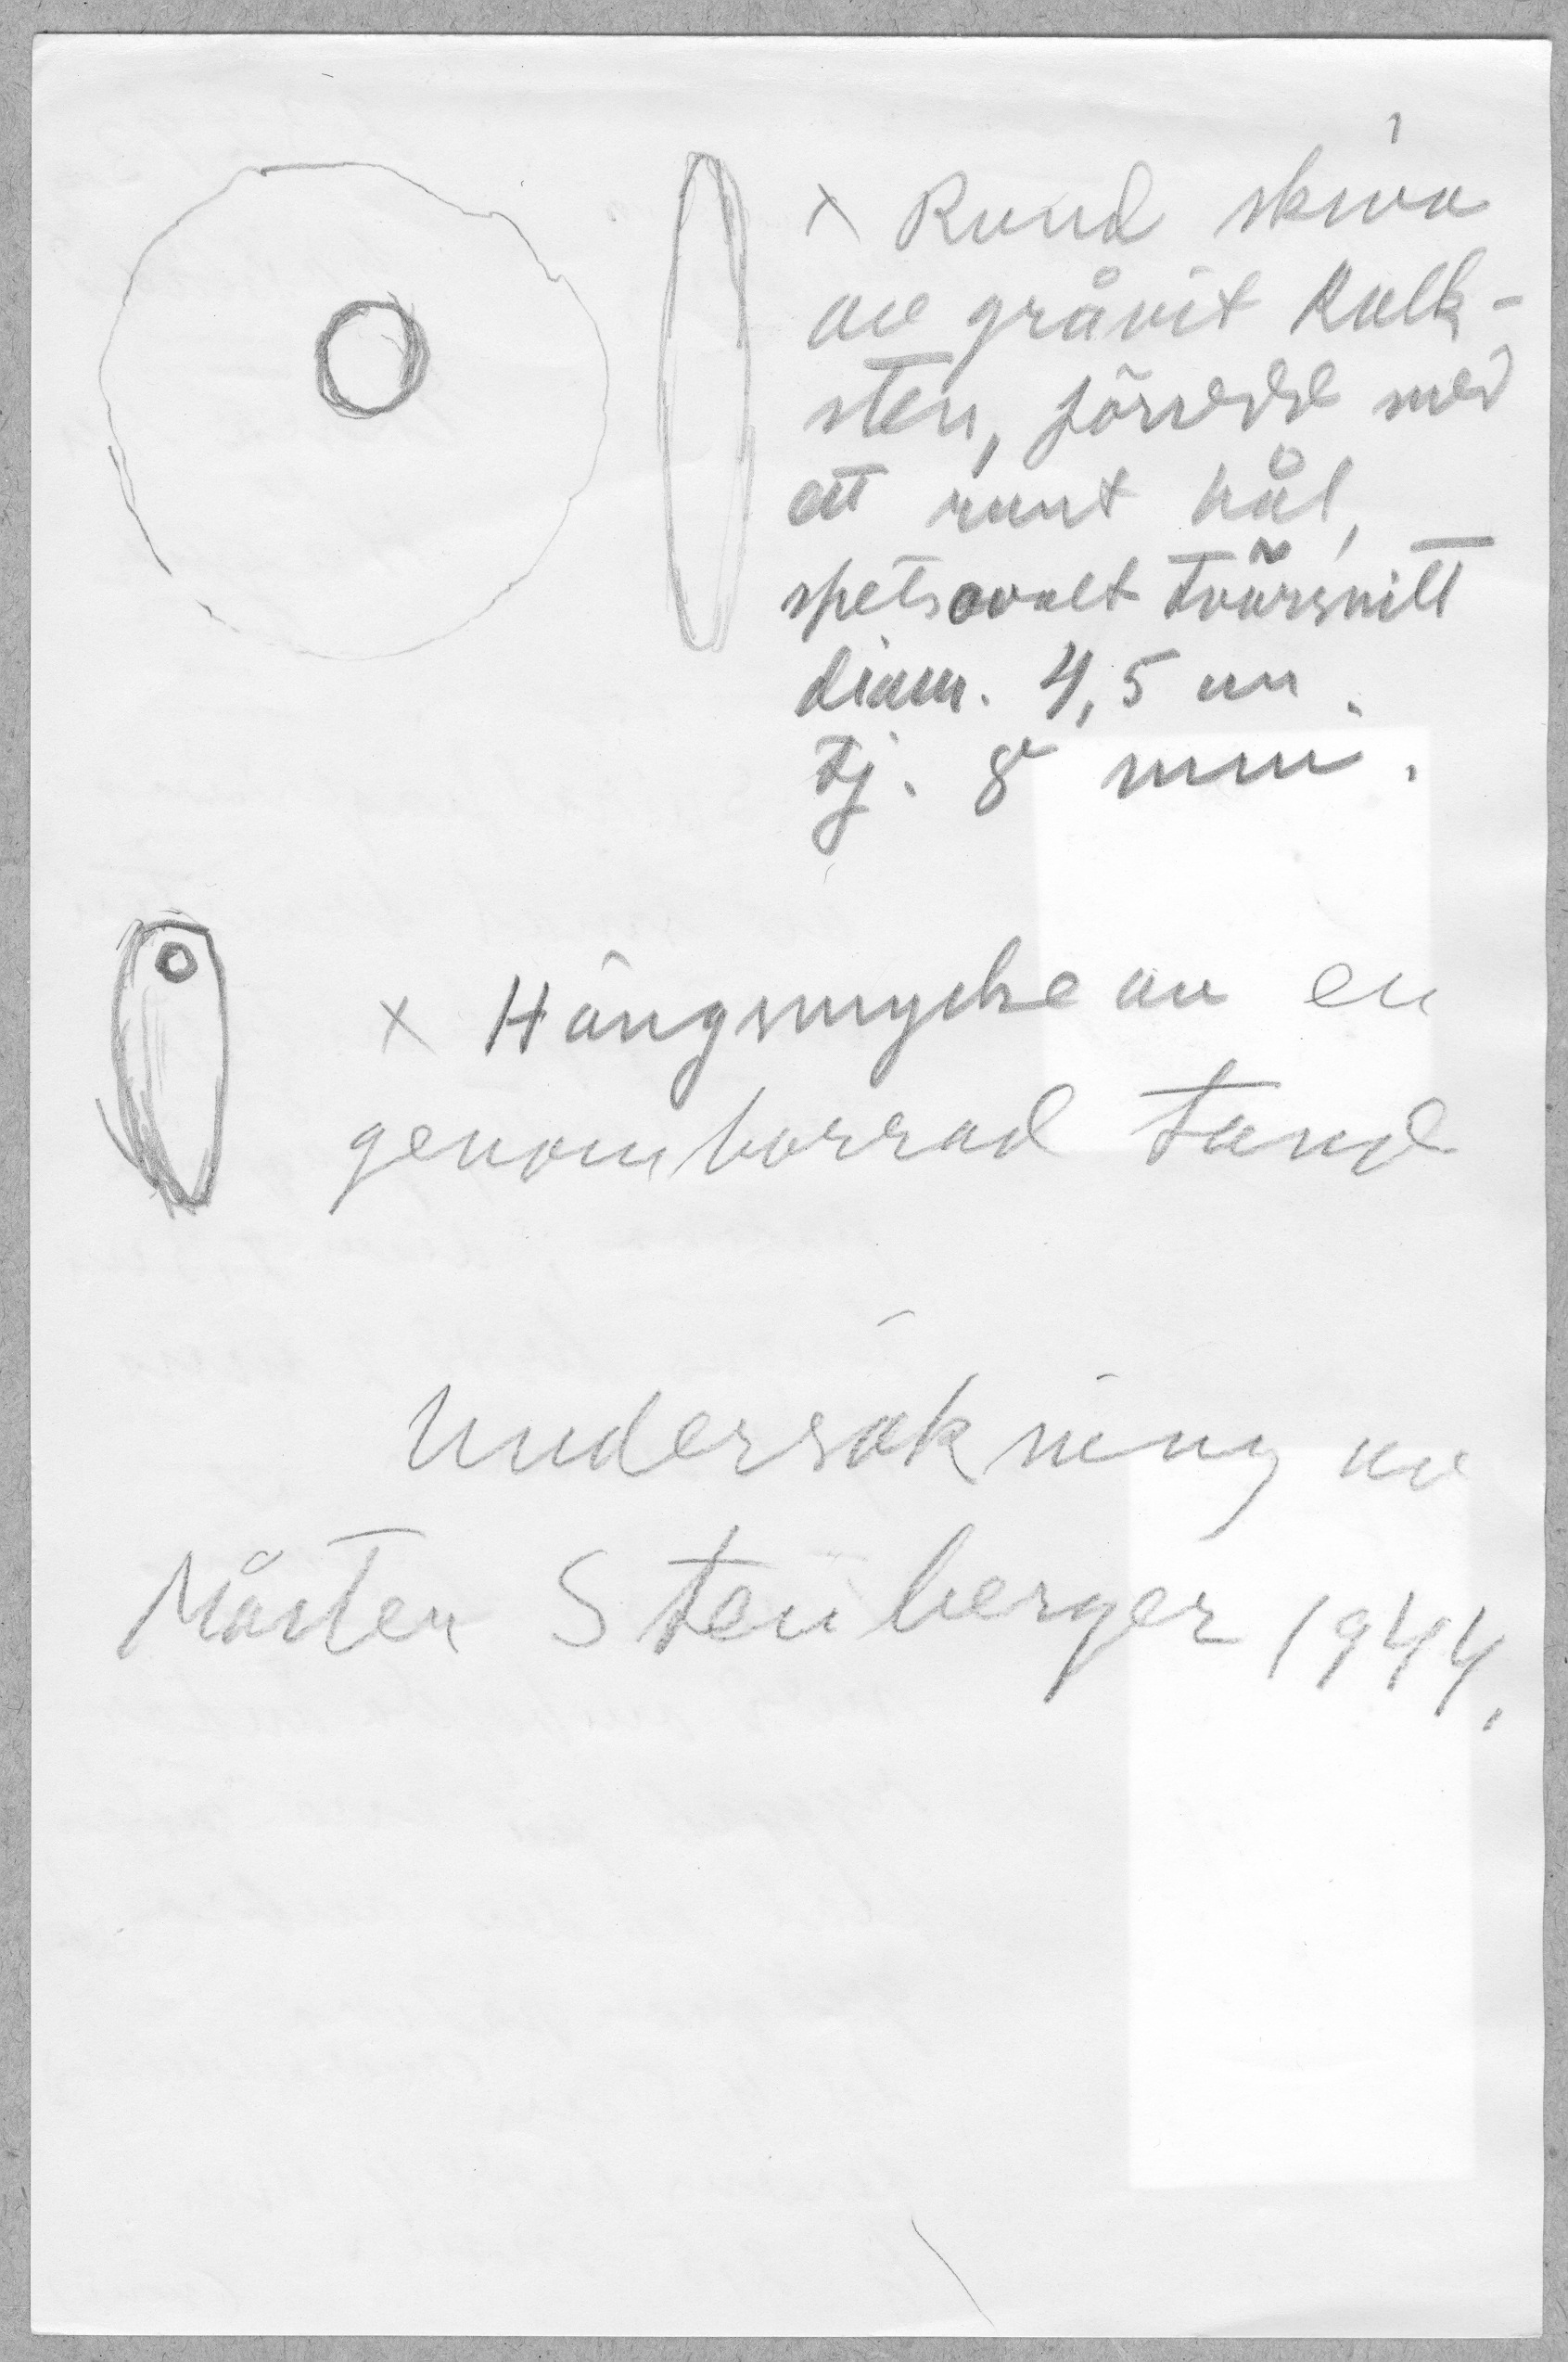 x Rund skiva
av gråvit kalk-
sten, försedd med
ett runt hål,
spetsovalt tvärsnitt
diam. 4,5 cm.
tj. 8 mm.
x Hängsmycke av en
genomborrad tand
Undersökning av
Mårten Stenberger 1944.